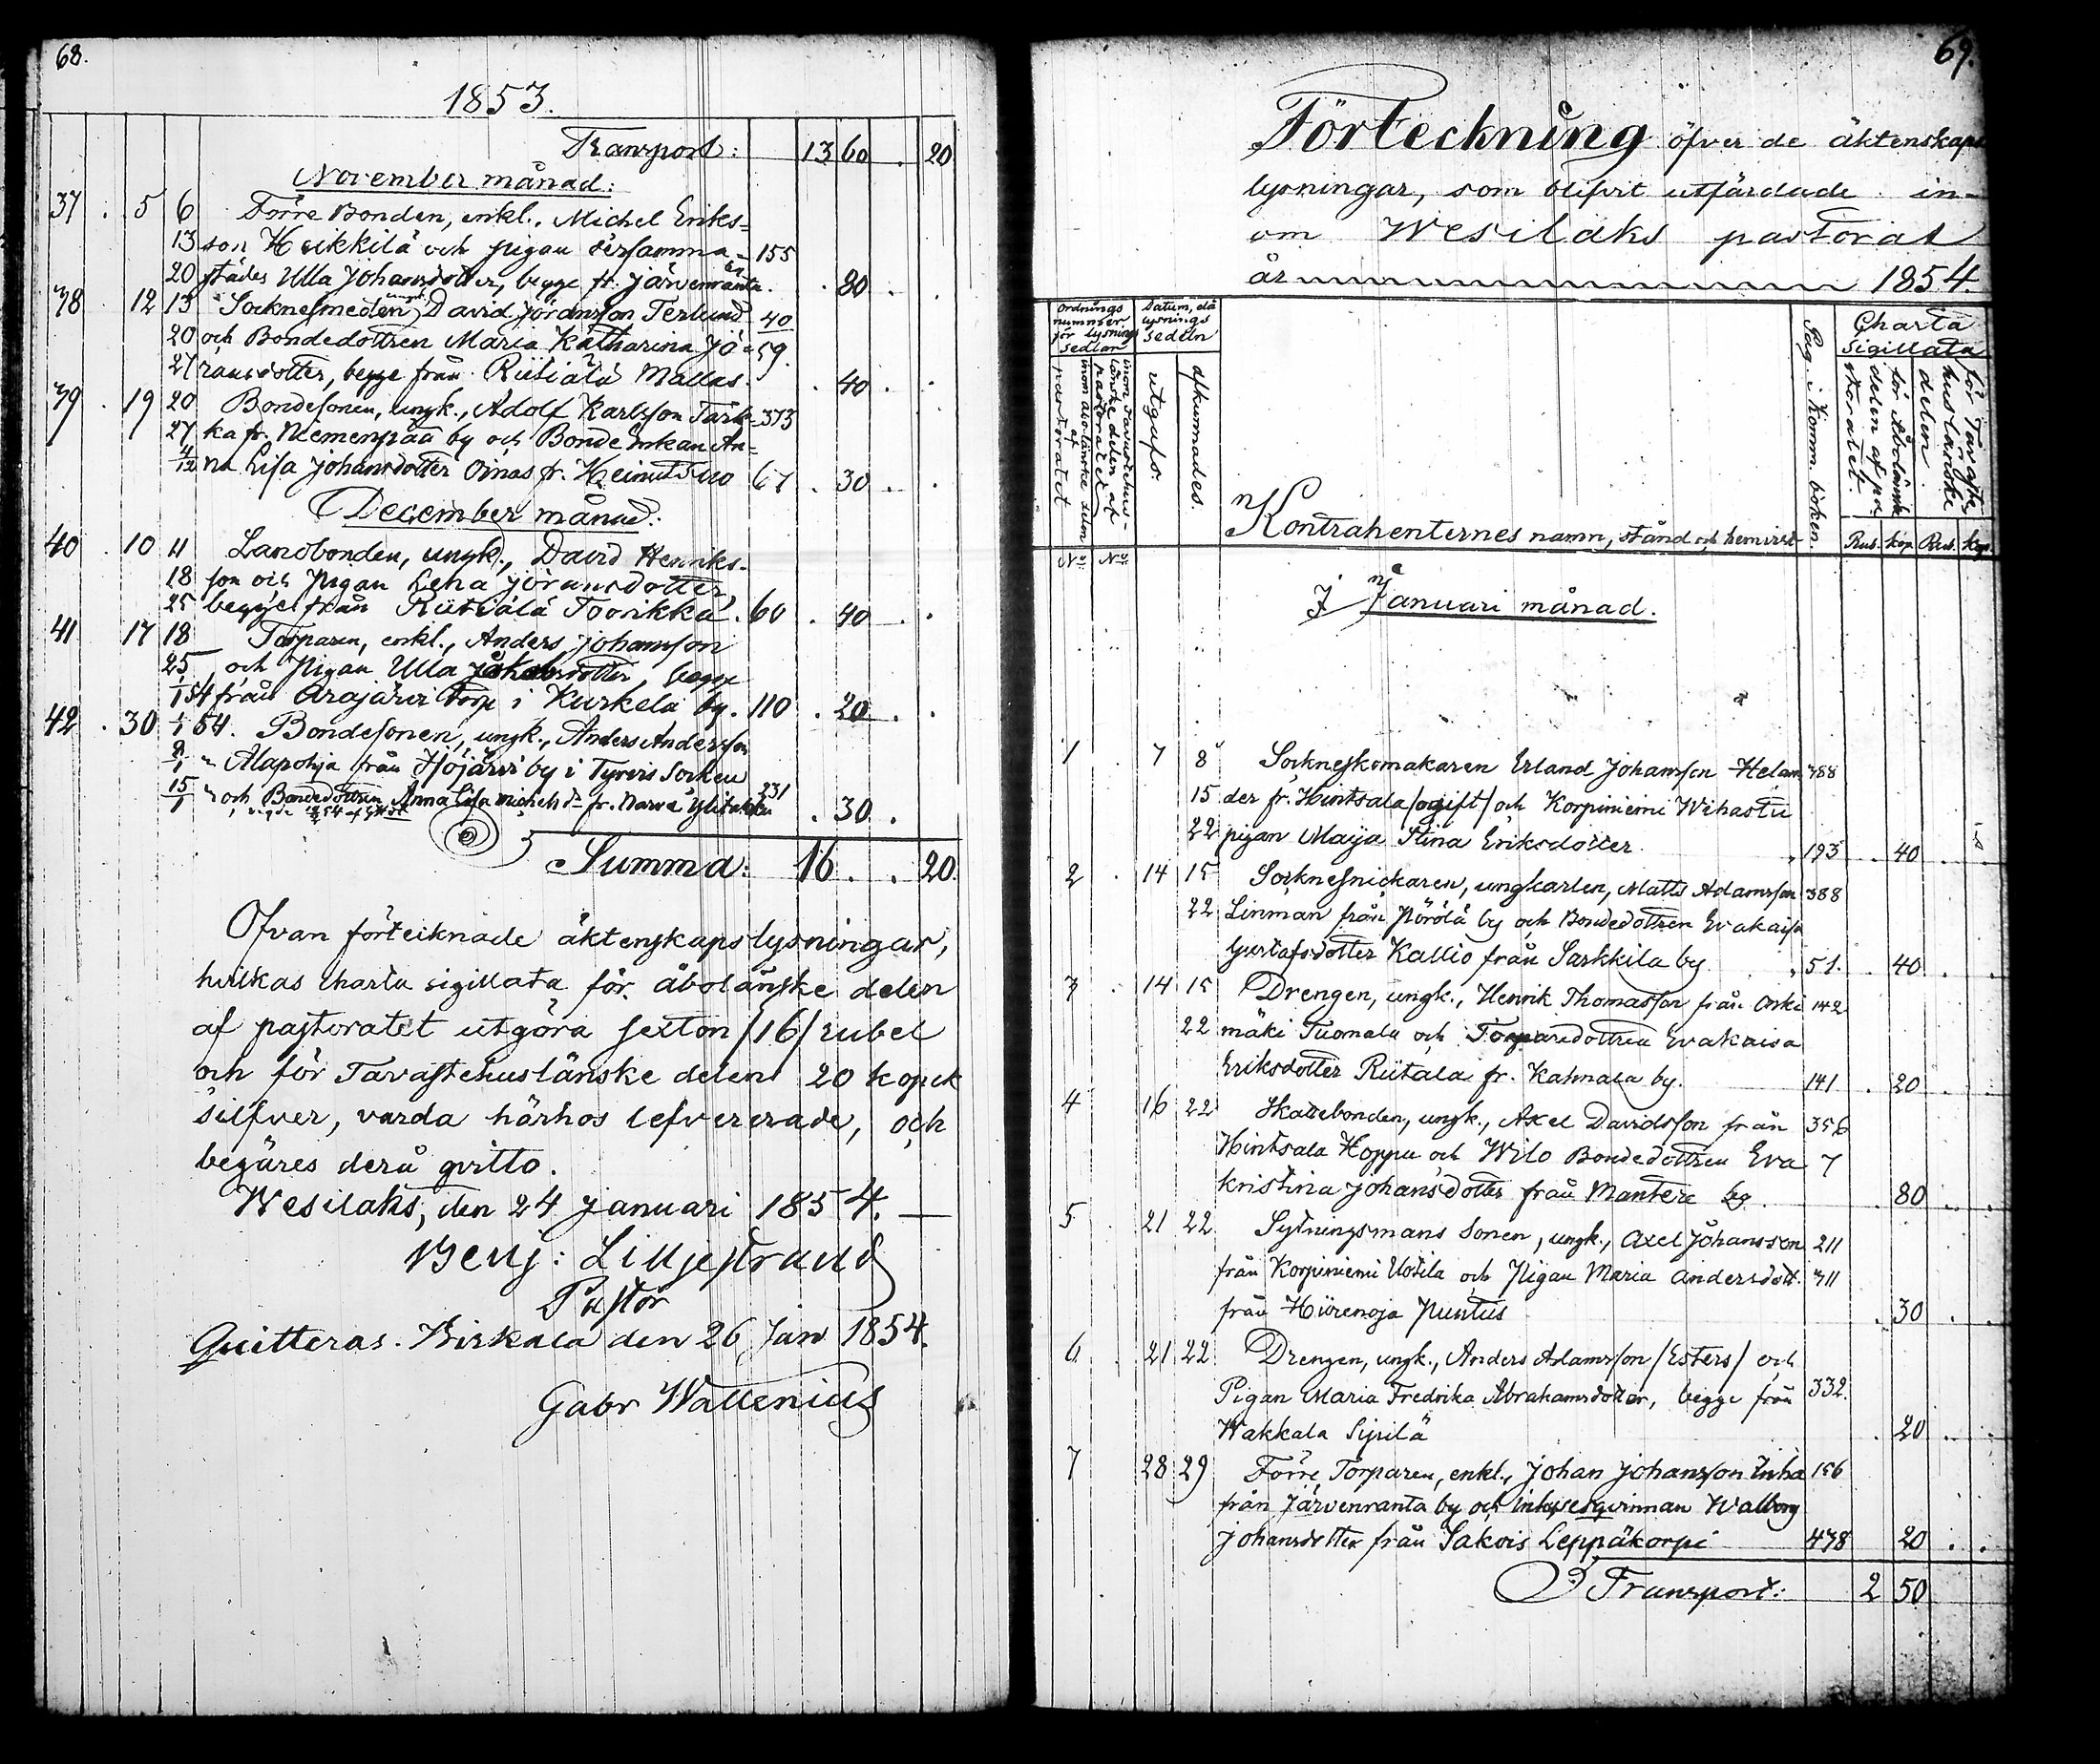 68.
1853.
Transport: 13 60 . 20
November månad:
37 . 5 6 Förre Bonden, enkl., Michel Eriks=
13 son Heikkilä och pigan dersamma= 155
20 städes Ulla Johansdotter, begge fr. Järvenranta by. . 80 . .
38 . 12 13 Socknesmeden, ungk., David Jöransson Terlund 40
20 och Bondedottren Maria Katharina Jö= 59.
27 ransdotter, begge från Riitiälä Mallas. . 40 . .
39 . 19 20 Bondesonen, ungk., Adolf Karlsson Tark= 373
27 ka fr. Niemenpää by och Bonde Enkan An=
4/12 na Lisa Johansdotter Oinas fr. Heinutsuo 67 . 30 . .
December månad:
40 . 10 11 Landbonden, ungk., David Henriks=
18 son och Pigan Lena Jöransdotter,
25 begge från Riitiälä Toorikka. 60 . 40 . .
41 17 18 Torparen, enkl., Anders Johansson
25 och Pigan Ulla Jakobsdotter, begge
1/1 54 från Arajärvi torp i Kurkela by. 110 . 20 . .
42 . 30 1/1 54. Bondesonen, ungk., Anders Andersson
8/1 " Alapohja från by i Tyrvis Socken
15/1 " och Bondedottren Anna Lisa Michelsdr fr. Narva Ylitalo 231 . 30 .
Summa: 16 . . 20.
Ofvan förteiknade äktenskapslysningar,
hvilkas charta sigillata för åbolänske delen
af pastoratet utgöra sexton /16/ rubel
och för Tavastehuslänske delen 20 kopek
silfver, varda härhos lefvererade, och
begäres derå qvitto.
Wesilaks, den 24 Januari 1854. —
Benj: Liljestrand
Pastor
Quitteras. Birkala den 26 Jan 1854.
Gabr Wallenius
69.
Förteckning öfver de äktenskaps
lysningar, som blifvit utfärdade in=
om Wesilaks pastorat
år 1854.
Ordnings nummer för lysnings sedlar
inom åbolänske delen af pastoratet
inom Tavastehus-länske delen af pastoratet
Datum, då lysnings sedeln
utgafs.
afkunnades.
Kontrahenternes namn, stånd och hemvist
Pag. i Komm. boken.
Charta Sigillata
för Åbolänske delen af pastoratet.
för Tavastehuslänske delen.
Rub. Kop. Rub. Kop.
No No
I Januari månad.
1 . 7 8 Sockneskomakaren Erland Johansson Helan 388
15 der fr. Hintsala /ogift/ och Korpiniemi Wihastu
22 pigan Maija Stina Eriksdotter. 193 . 40 .
2 . 14 15 Socknesnickaren, ungkarlen, Matts Adamsson 388
22 Linman från Pörölä by och Bondedottren Evakaisa
Gustafsdotter Kallio från Sarkkila by. 51. . 40 . .
3 . 14 15 Drengen, ungk., Henrik Thomasson från Onki 142
22 mäki Tuomala och Torparedottren Evakaisa
Eriksdotter Riitala fr. Kahnala by. 141 . 20 . .
4 16 22 Skattebonden, ungk., Axel Davidsson från 356
Hintsala Hoppu och Wilo Bondedottren Eva 7
kristina Johansdotter från Mantere by. . 80 . .
5 . 21 22 Sytningsmans Sonen, ungk., Axel Johansson 211
från Korpiniemi Uotila och Pigan Maria Andersdott. 311
från Hiirenoja Puntus . 30 . .
6 . 21 22 Drengen, ungk., Anders Adamsson /Esters/ och
Pigan Maria Fredrika Abrahamsdotter, begge från 332.
Wakkala Sipilä . 20 . .
7 28 29 Förre Torparen, enkl., Johan Johansson Inha 156
från Järvenranta by och Inhysesqvinnan Walborg
Johansdotter från Sakois Leppäkorpi 478 20 . .
Transport: 2 50